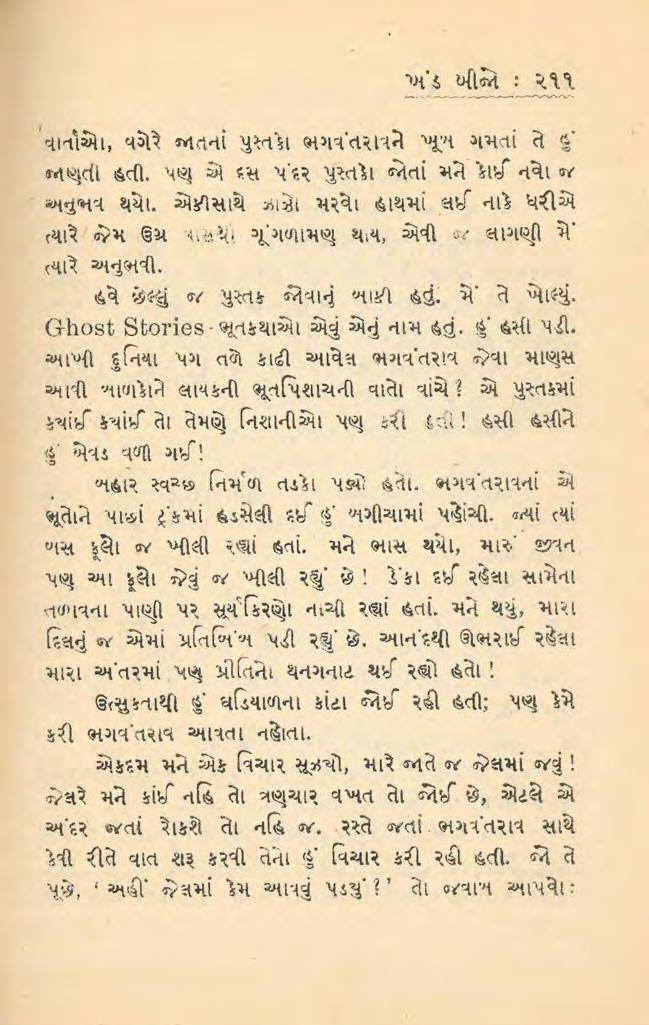 ખંડ બીજો : ૨૧૧
વાર્તાઓ, વગેરે જાતનાં પુસ્તકો ભગવંતરાવને ખૂબ ગમતાં તે હું
જાણતી હતી. પણ એ દસ પંદર પુસ્તકો જોતાં મને કોઈ નવો જ
અનુભવ થયો. એકીસાથે ઝાઝો મરવો હાથમાં લઈ નાકે ધરીએ
ત્યારે જેમ ઉગ્ર વાસથી ગૂંગળામણ થાય, એવી જ લાગણી મેં
ત્યારે અનુભવી.
હવે છેલ્લું જ પુસ્તક જોવાનું બાકી હતું. મેં તે ખોલ્યું.
Ghost Stories - ભૂતકથાઓ એવું એનું નામ હતું. હું હસી પડી.
આખી દુનિયા પગ તળે કાઢી આવેલ ભગવંતરાવ જેવા માણસ
આવી બાળકોને લાયકની ભૂતપિશાચની વાતો વાંચે? એ પુસ્તકમાં
કયાંઈ કયાંઈ તો તેમણે નિશાનીઓ પણ કરી હતી! હસી હસીને
હું બેવડ વળી ગઈ!
બહાર સ્વચ્છ નિર્મળ તડકો પડ્યો હતો. ભગવંતરાવનાં એ
ભૂતોને પાછાં ટ્રંકમાં હડસેલી દઈ હું બગીચામાં પહોંચી. જ્યાં ત્યાં
બસ ફૂલો જ ખીલી રહ્યાં હતાં. મને ભાસ થયો, મારું જીવન
પણ આ ફૂલો જેવું જ ખીલી રહ્યું છે! ડેંકા દઈ રહેલા સામેના
તળાવના પાણી પર સૂર્યકિરણો નાચી રહ્યાં હતાં. મને થયું, મારા
દિલનું જ એમાં પ્રતિબિંબ પડી રહ્યું છે. આનંદથી ઊભરાઈ રહેલા
મારા અંતરમાં પણ પ્રીતિનો થનગનાટ થઈ રહ્યો હતો!
ઉત્સુકતાથી હું ઘડિયાળના કાંટા જોઈ રહી હતી; પણ કેમે
કરી ભગવંતરાવ આવતા નહોતા.
એકદમ મને એક વિચાર સૂઝયો, મારે જાતે જ જેલમાં જવું!
જેલરે મને કાંઈ નહિ તો ત્રણચાર વખત તો જોઈ છે, એટલે એ
અંદર જતાં રોકશે તો નહિ જ. રસ્તે જતાં ભગવંતરાવ સાથે
કેવી રીતે વાત શરૂ કરવી તેનો હું વિચાર કરી રહી હતી. જો તે
પૂછે, ‘ અહીં જેલમાં કેમ આવવું પડયું ?’ તો જવાબ આપવો: